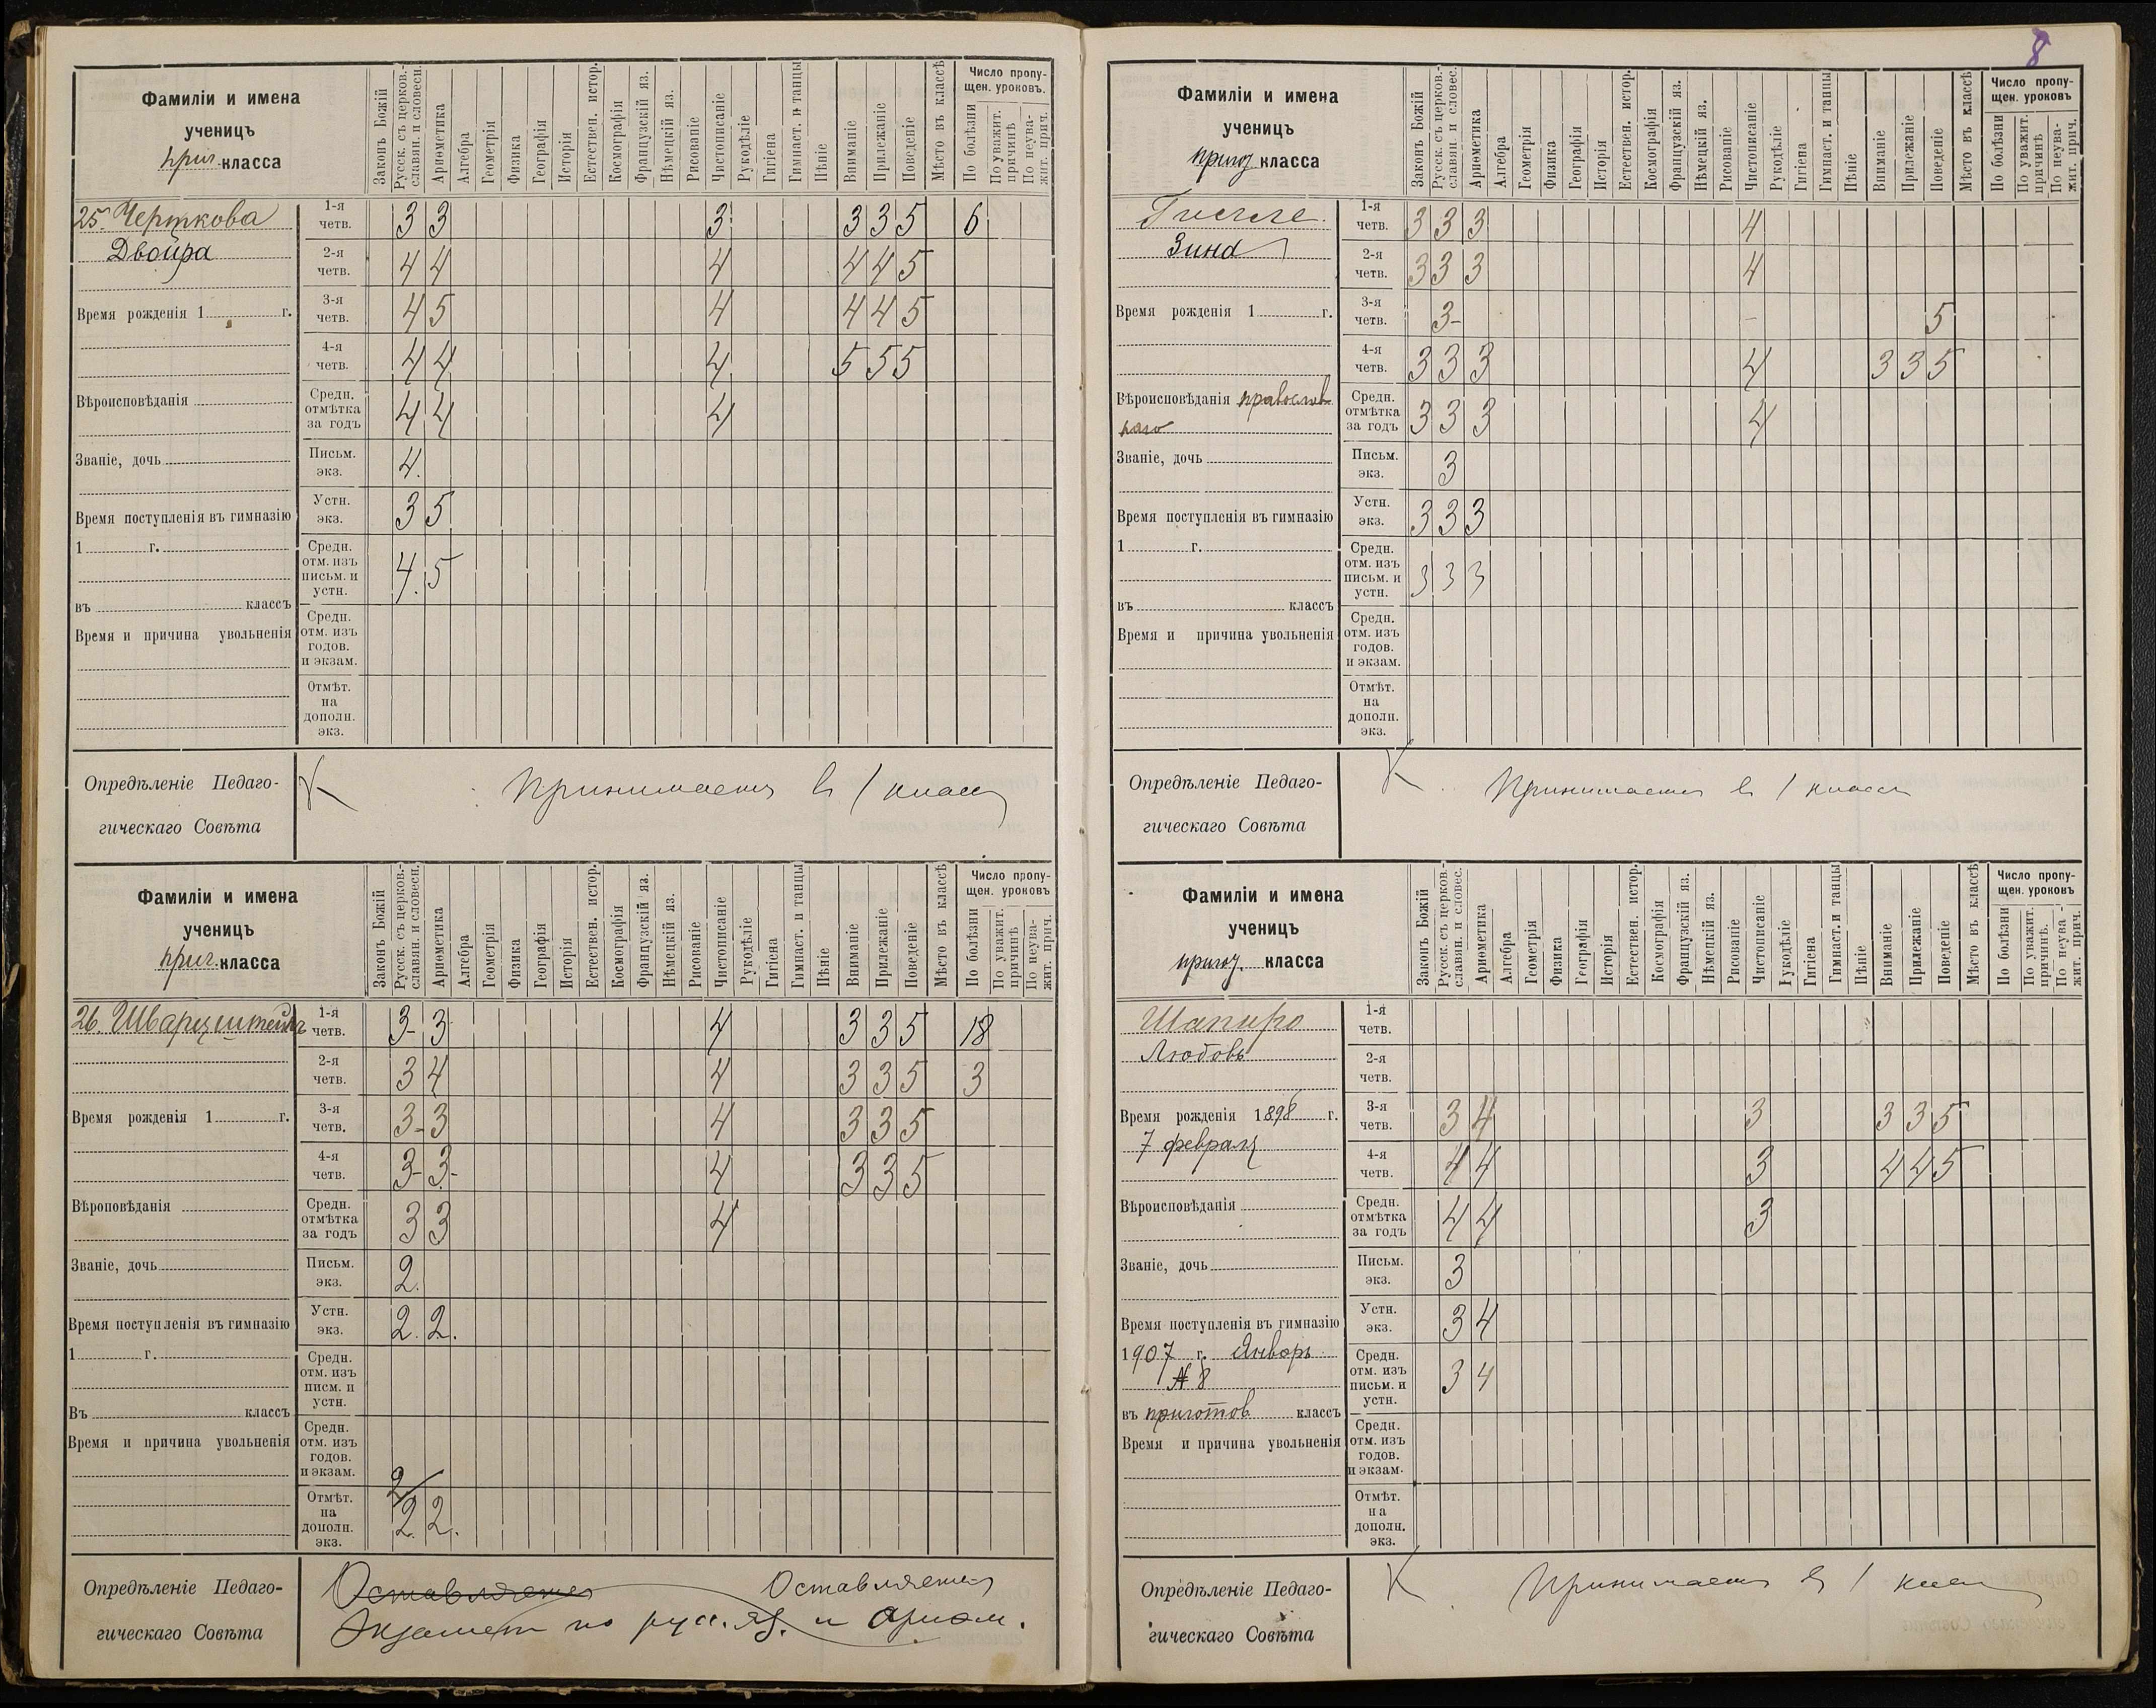 8
Фамиліи и имена
ученицъ
приг. класса
Законъ Божій
Русск. съ церков.-
славян. и словесн.
Ариѳметика
Алгебра
Геометрія
Физика
Географія
Исторія
Естествен. истор.
Космографія
Французскій яз.
Нѣмецкій яз.
Рисованіе
Чистописаніе
Рукодѣліе
Гигіена
Гимнаст. и танцы
Пѣніе
Вниманіе
Прилежаніе
Поведеніе
Мѣсто въ классѣ
Число пропу-
щен. уроковъ.
По болѣзни
По уважит.
причинѣ
По неува-
жит. прич.
25. Черткова
Двойра
1-я четв. 3 3 3 3 3 5 6
2-я четв. 4 4 4 4 4 5
Время рожденія 1 г.
3-я четв. 4 5 4 4 4 5
4-я четв. 4 4 4 5 5 5
Вѣроисповѣданія
Средн. отмѣтка за годъ 4 4 4
Званіе, дочь
Письм. экз. 4.
Время поступленія въ гимназію
1 г.
Устн. экз. 3 5
Средн. отм. изъ письм. и устн. 4. 5
въ классъ
Время и причина увольненія
Средн. отм. изъ годов. и экзам.
Отмѣт. на дополн. экз.
Опредѣленіе Педаго-
гическаго Совѣта
Принимается в 1 класс
Фамиліи и имена
ученицъ
приг. класса
Законъ Божій
Русск. съ церков.-
славян. и словесн.
Ариѳметика
Алгебра
Геометрія
Физика
Географія
Исторія
Естествен. истор.
Космографія
Французскій яз.
Нѣмецкій яз.
Рисованіе
Чистописаніе
Рукодѣліе
Гигіена
Гимнаст. и танцы
Пѣніе
Вниманіе
Прилежаніе
Поведеніе
Мѣсто въ классѣ
Число пропу-
щен. уроковъ
По болѣзни
По уважит.
причинѣ
По неува-
жит. прич.
26. Шварцштейнъ
1-я четв. 3- 3 4 3 3 5 18
2-я четв. 3 4 4 3 3 5 3
Время рожденія 1 г.
3-я четв. 3- 3 4 3 3 5
4-я четв. 3- 3- 4 3 3 5
Вѣроповѣданія
Средн. отмѣтка за годъ 3 3 4
Званіе, дочь
Письм. экз. 2.
Время поступленія въ гимназію
1 г.
Устн. экз. 2. 2.
Средн. отм. изъ писм. и устн.
Въ классъ
Время и причина увольненія
Средн. отм. изъ годов. и экзам.
2/
Отмѣт. на дополн. экз. 2. 2.
Опредѣленіе Педаго-
гическаго Совѣта
Оставляется Оставляется
Экзамен по русс. яз. и ариѳм.
Фамиліи и имена
ученицъ
пригот класса
Законъ Божій
Русск. съ церков.-
славян. и словес.
Ариѳметика
Алгебра
Геометрія
Физика
Географія
Исторія
Естествен. истор.
Космографія
Французскій яз.
Нѣмецкій яз.
Рисованіе
Чистописаніе
Рукодѣліе
Гигіена
Гимнаст. и танцы
Пѣніе
Вниманіе
Прилежаніе
Поведеніе
Мѣсто въ классѣ
Число пропу-
щен. уроковъ
По болѣзни
По уважит.
причинѣ
По неува-
жит. прич.
Зина
1-я четв. 3 3 3 4
2-я четв. 3 3 3 4
Время рожденія 1 г.
3-я четв. 3- 5
4-я четв. 3 3 3 4 3 3 5
Вѣроисповѣданія православ
наго
Средн. отмѣтка за годъ 3 3 3 4
Званіе, дочь
Письм. экз. 3
Время поступленія въ гимназію
1 г.
Устн. экз. 3 3 3
Средн. отм. изъ письм. и устн. 3 3 3
въ классъ
Время и причина увольненія
Средн. отм. изъ годов. и экзам.
Отмѣт. на дополн. экз.
Опредѣленіе Педаго-
гическаго Совѣта
Принимается в 1 класс
Фамиліи и имена
ученицъ
пригот. класса
Законъ Божій
Русск. съ церков.-
славян. и словес.
Ариѳметика
Алгебра
Геометрія
Физика
Географія
Исторія
Естествен. истор.
Космографія
Французскій яз.
Нѣмецкій яз.
Рисованіе
Чистописаніе
Рукодѣліе
Гигіена
Гимнаст. и танцы
Пѣніе
Вниманіе
Прилежаніе
Поведеніе
Мѣсто въ классѣ
Число пропу-
щен. уроковъ
По болѣзни
По уважит.
причинѣ.
По неува-
жит. прич.
Шапиро
Любовь
1-я четв.
2-я четв.
Время рожденія 1898 г.
7 февраля
3-я четв. 3 4 3 3 3 5
4-я четв. 4 4 3 4 4 5
Вѣроисповѣданія
Средн. отмѣтка за годъ 4 4 3
Званіе, дочь
Письм. экз. 3
Время поступленія въ гимназію
1907 г. Январь
№ 8
Устн. экз. 3 4
Средн. отм. изъ письм. и устн. 3 4
въ приготов классъ
Время и причина увольненія
Средн. отм. изъ годов. и экзам.
Отмѣт. на дополн. экз.
Опредѣленіе Педаго-
гическаго Совѣта
Принимается в 1 класс